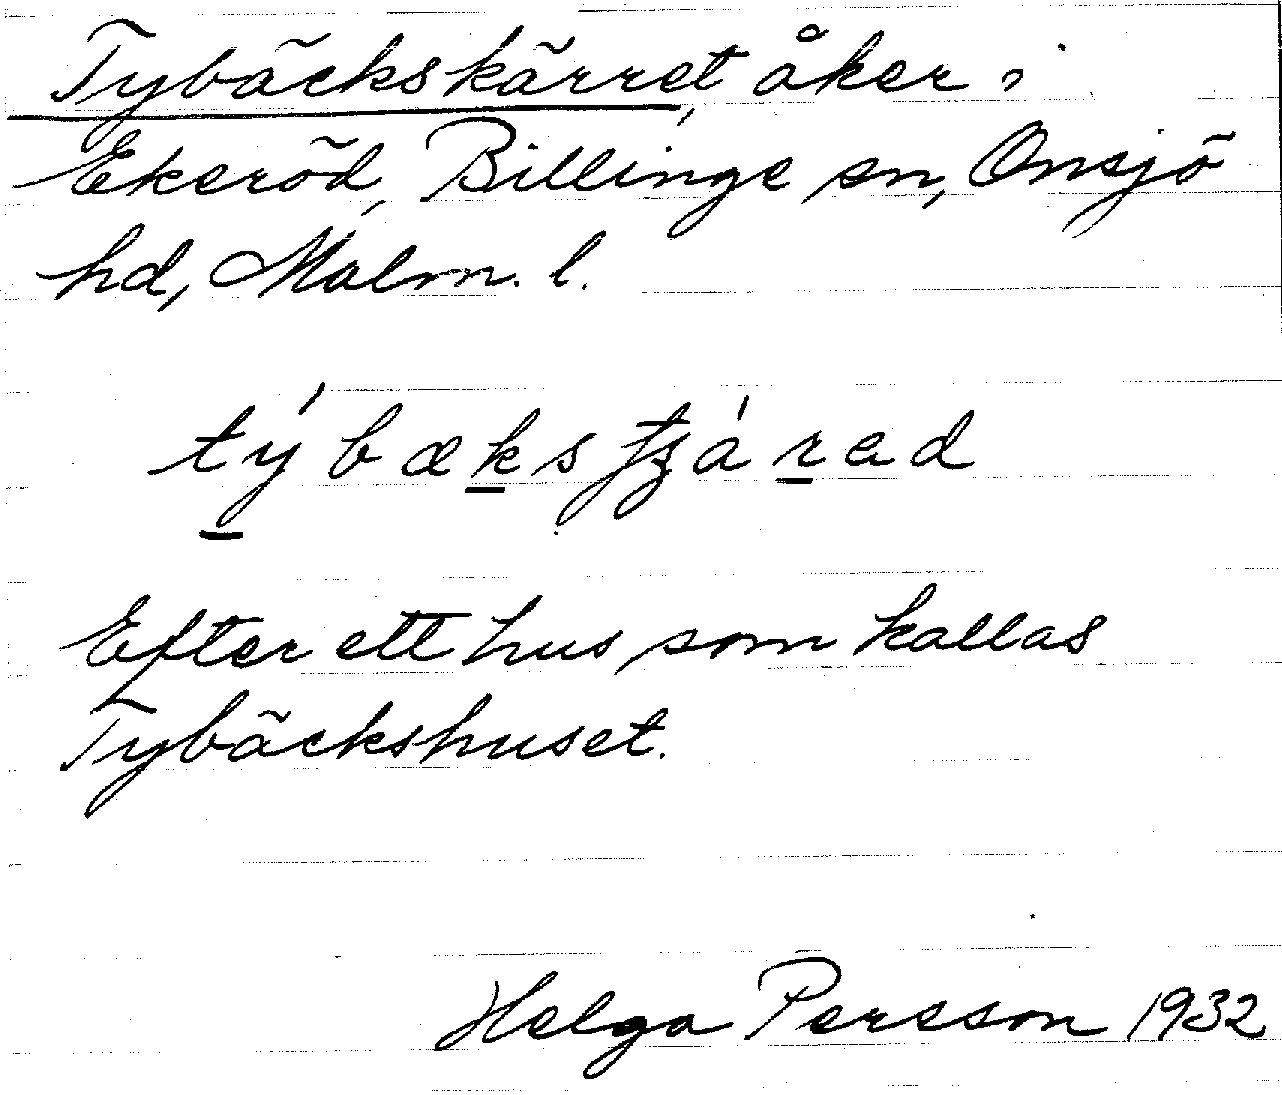 Tybäckskärret, åker i
Ekeröd, Billinge sn, Onsjö
hd, Malm. l.
týbæksfzárad
Efter ett hus som kallas
Tybäckshuset.
Helga Persson 1932